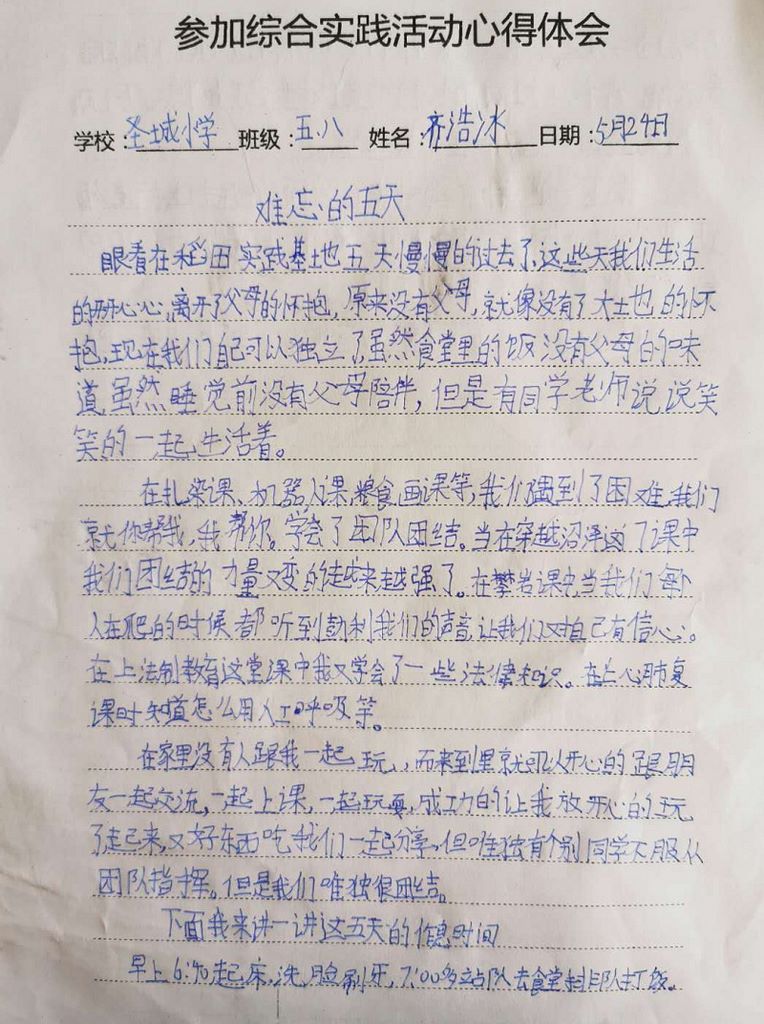 参加综合实践活动心得体会
学校:圣城小学 班级:五.八 姓名:齐浩冰 日期:5月29日
难忘的五天
眼看在稻田实践基地五天慢慢的过去了,这些天我们生活
的开心心,离开了父母的怀抱,原来没有父母,就像没有了大土也的怀
抱,现在我们自己可以独立了虽然食堂里的饭没有父母的味
道虽然睡觉前没有父母陪伴,但是有同学老师说说笑
笑的一起生活着。
在扎染课、机器人课,粮食画课等,我们遇到了困难,我们
就你帮我,我帮你。学会了团队团结。当在穿越沼泽这门课中
我们团结的力量又变的越来越强了。在攀岩课中,当我们每个
人在爬的时候都听到鼓利我们的声音,让我们对自己有信心。
在上法制教育这堂课中我又学会了一些法律知识。在上心肺复
课时知道怎么用人工呼吸等。
在家里没有人跟我一起玩,而来到里就可以开心的跟朋
友一起交流,一起上课,一起玩耍,成功的让我放开心的玩
了起来,又好东西吃我们一起分享,但唯独有个别同学不服从
团队指挥。但是我们唯独很团结。
下面我来讲一讲这五天的作息时间
早上6:40起床,洗脸刷牙,7:00多站队去食堂排队打饭。